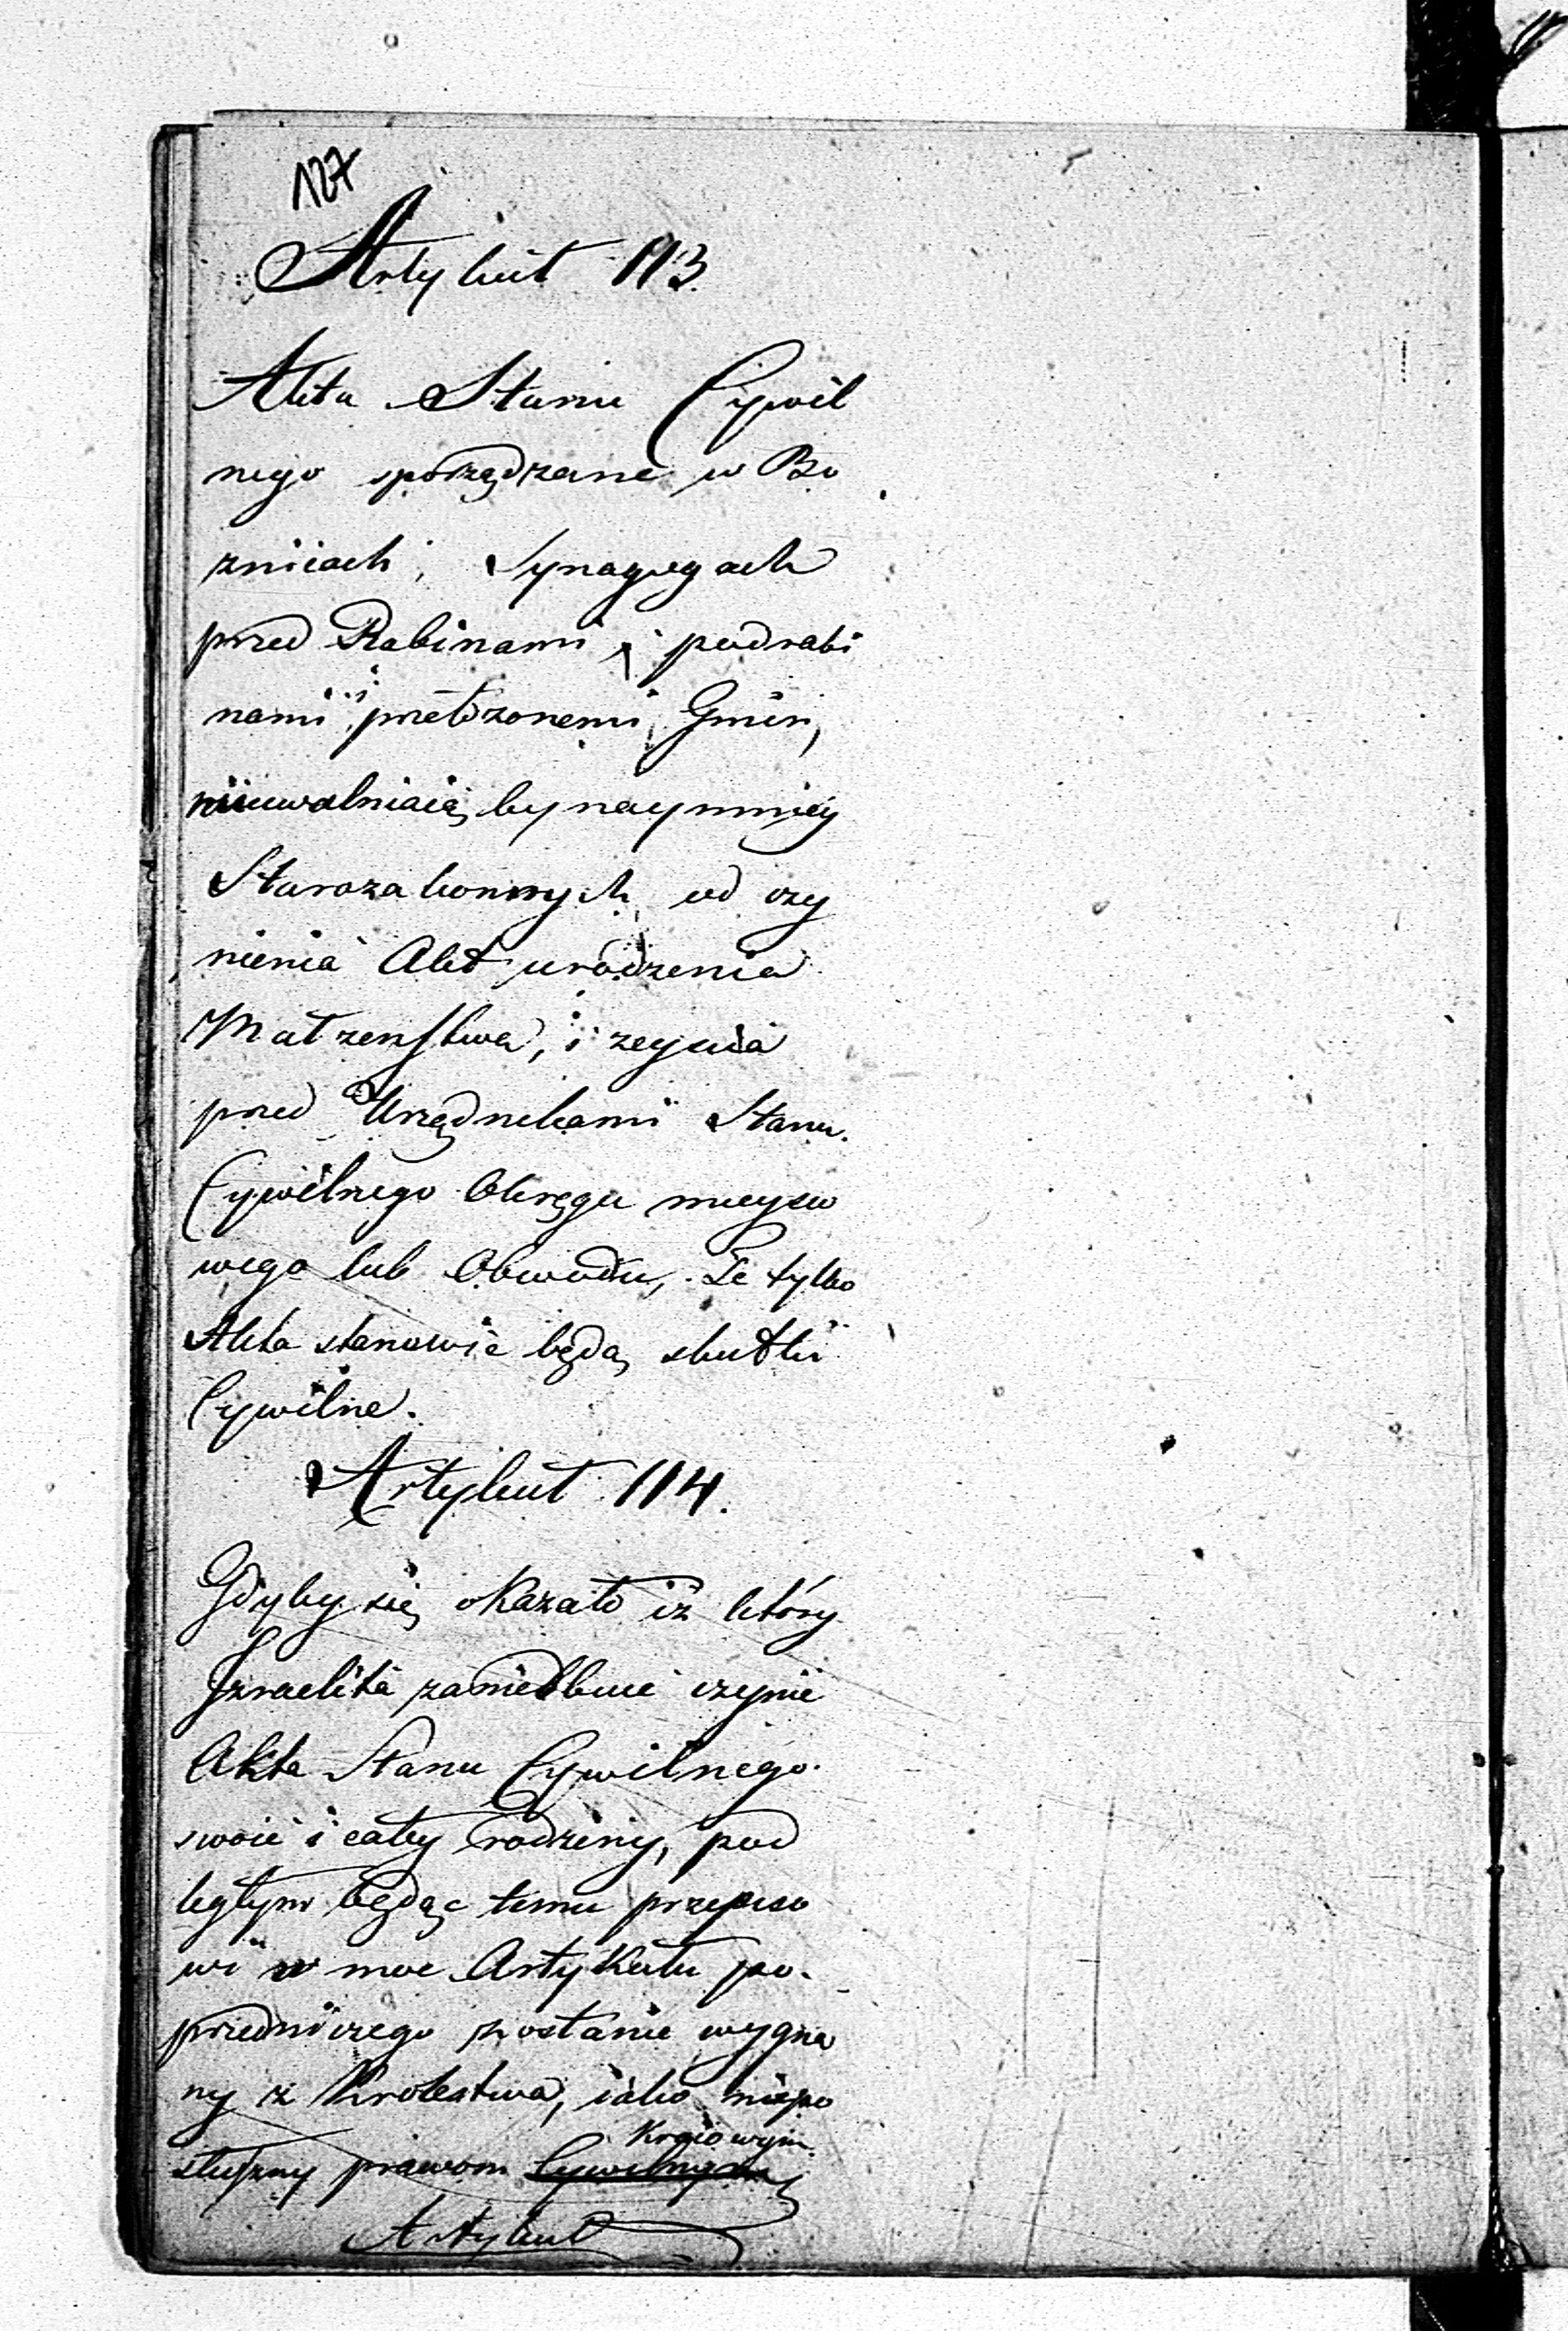 127
Artykuł 113.
Akta Stanu Cywil
nego sporządzane w Bo
znicach, Synagogach
przed Rabinami i podrabi
nami, i przełożonemi Gmin,
nieuwalniaią bynaymniey
Starozakonnych od czy
nienia Akt urodzenia
Małzenstwa, i zeyscia
przed Urzędnikami Stanu
Cywilnego Okręgu mieysco
wego lub Obwodu, Te tylko
Akta stanowić będą skutki
Cywilne.
Artykuł 114.
Gdyby się okazało iz który
Izraelita zaniedbuie czynić
Akta Stanu Cywilnego
swoie i całey rodziny, pod
ległym będąc temu przepiso
wi w moc Artykułu po-
przedniczego zostanie wygna
ny z Krolestwa, iako niepo
Kraiowym
słuszny prawom Cywilnym
Artykuł